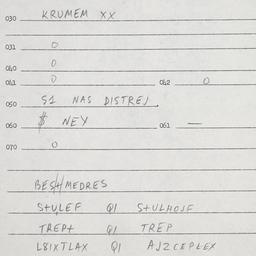 030 KRUMEM XX
031 0
040 0
041 0 042 0
050 S1 NAS DISTREJ
060 $ NEY 061 —
070 0
BESH/MEDRES
STULEF Q1 STULHOJF
TREPT Q1 TREP
L8IXTLAX Q1 AJ2CEPLEX